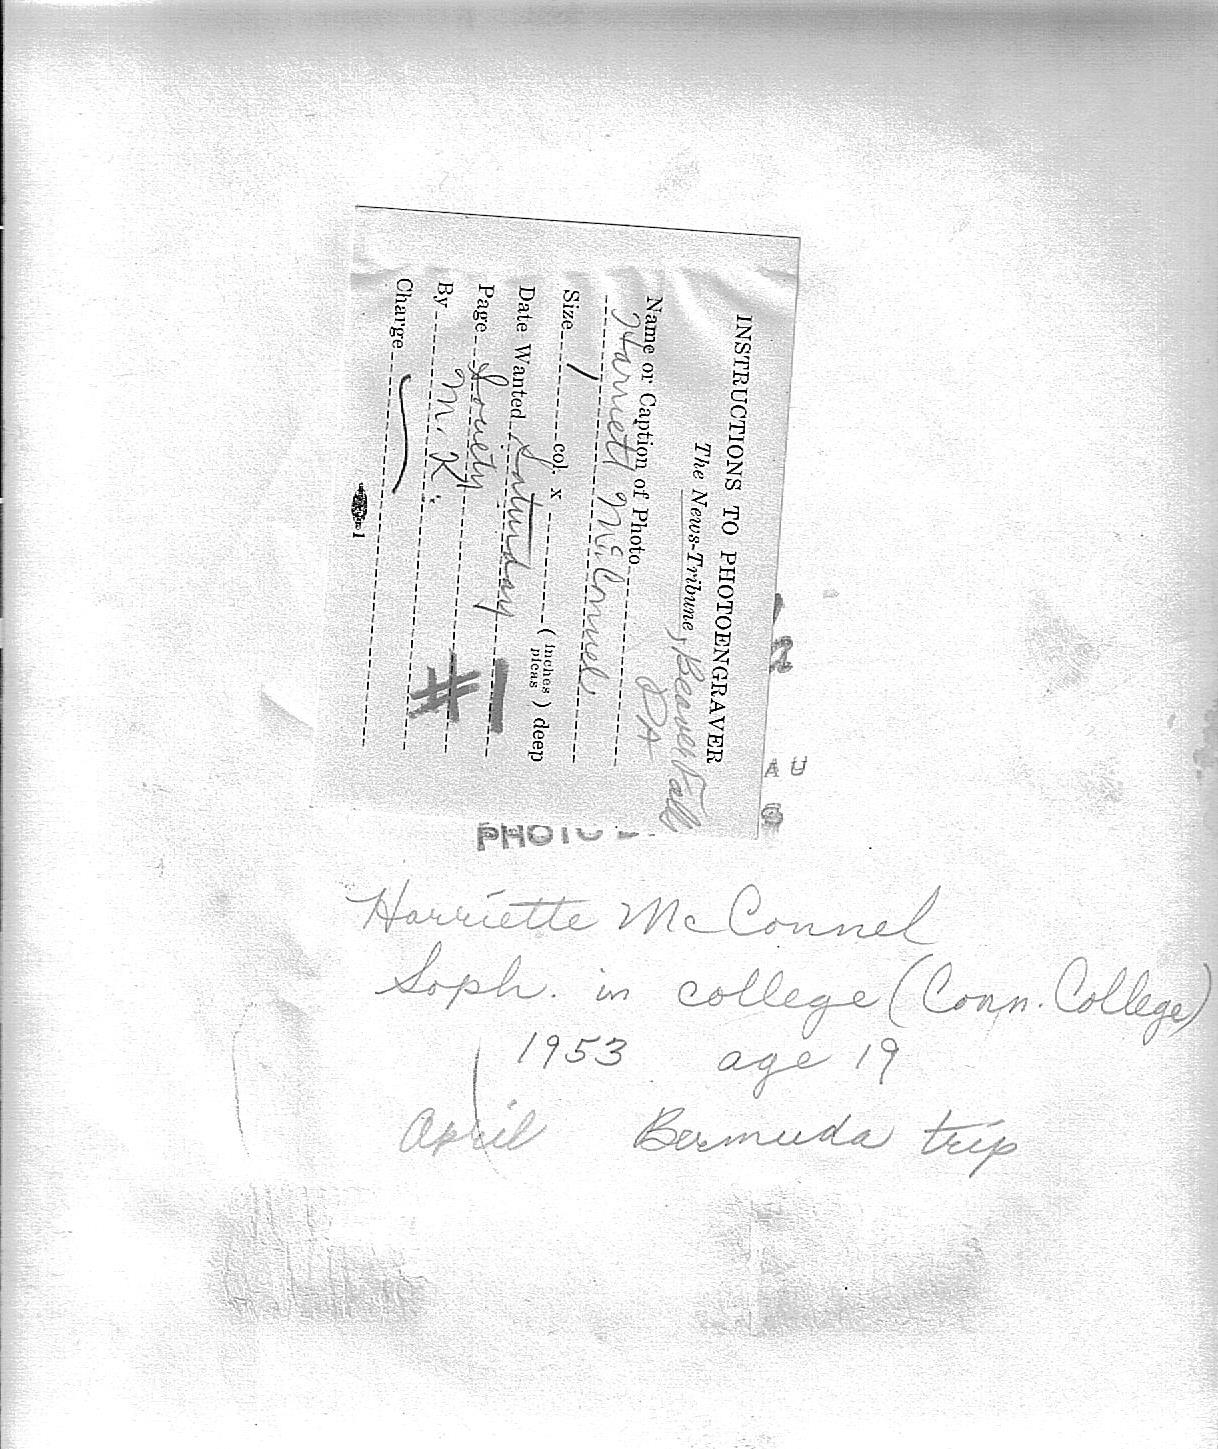 INSTRUCTIONS TO PHOTOENGRAVER
The News-Tribune, Beaver Falls
PA
Name or Caption of Photo
Harriett McConnel
Size 1 col. x ( inches picas ) deep
Date Wanted Saturday
Page Society #1
By M. K.
Charge
1
2
A U
PHOTO
Harriette McConnel
Soph. in college (Conn. College)
1953 age 19
April Bermuda trip